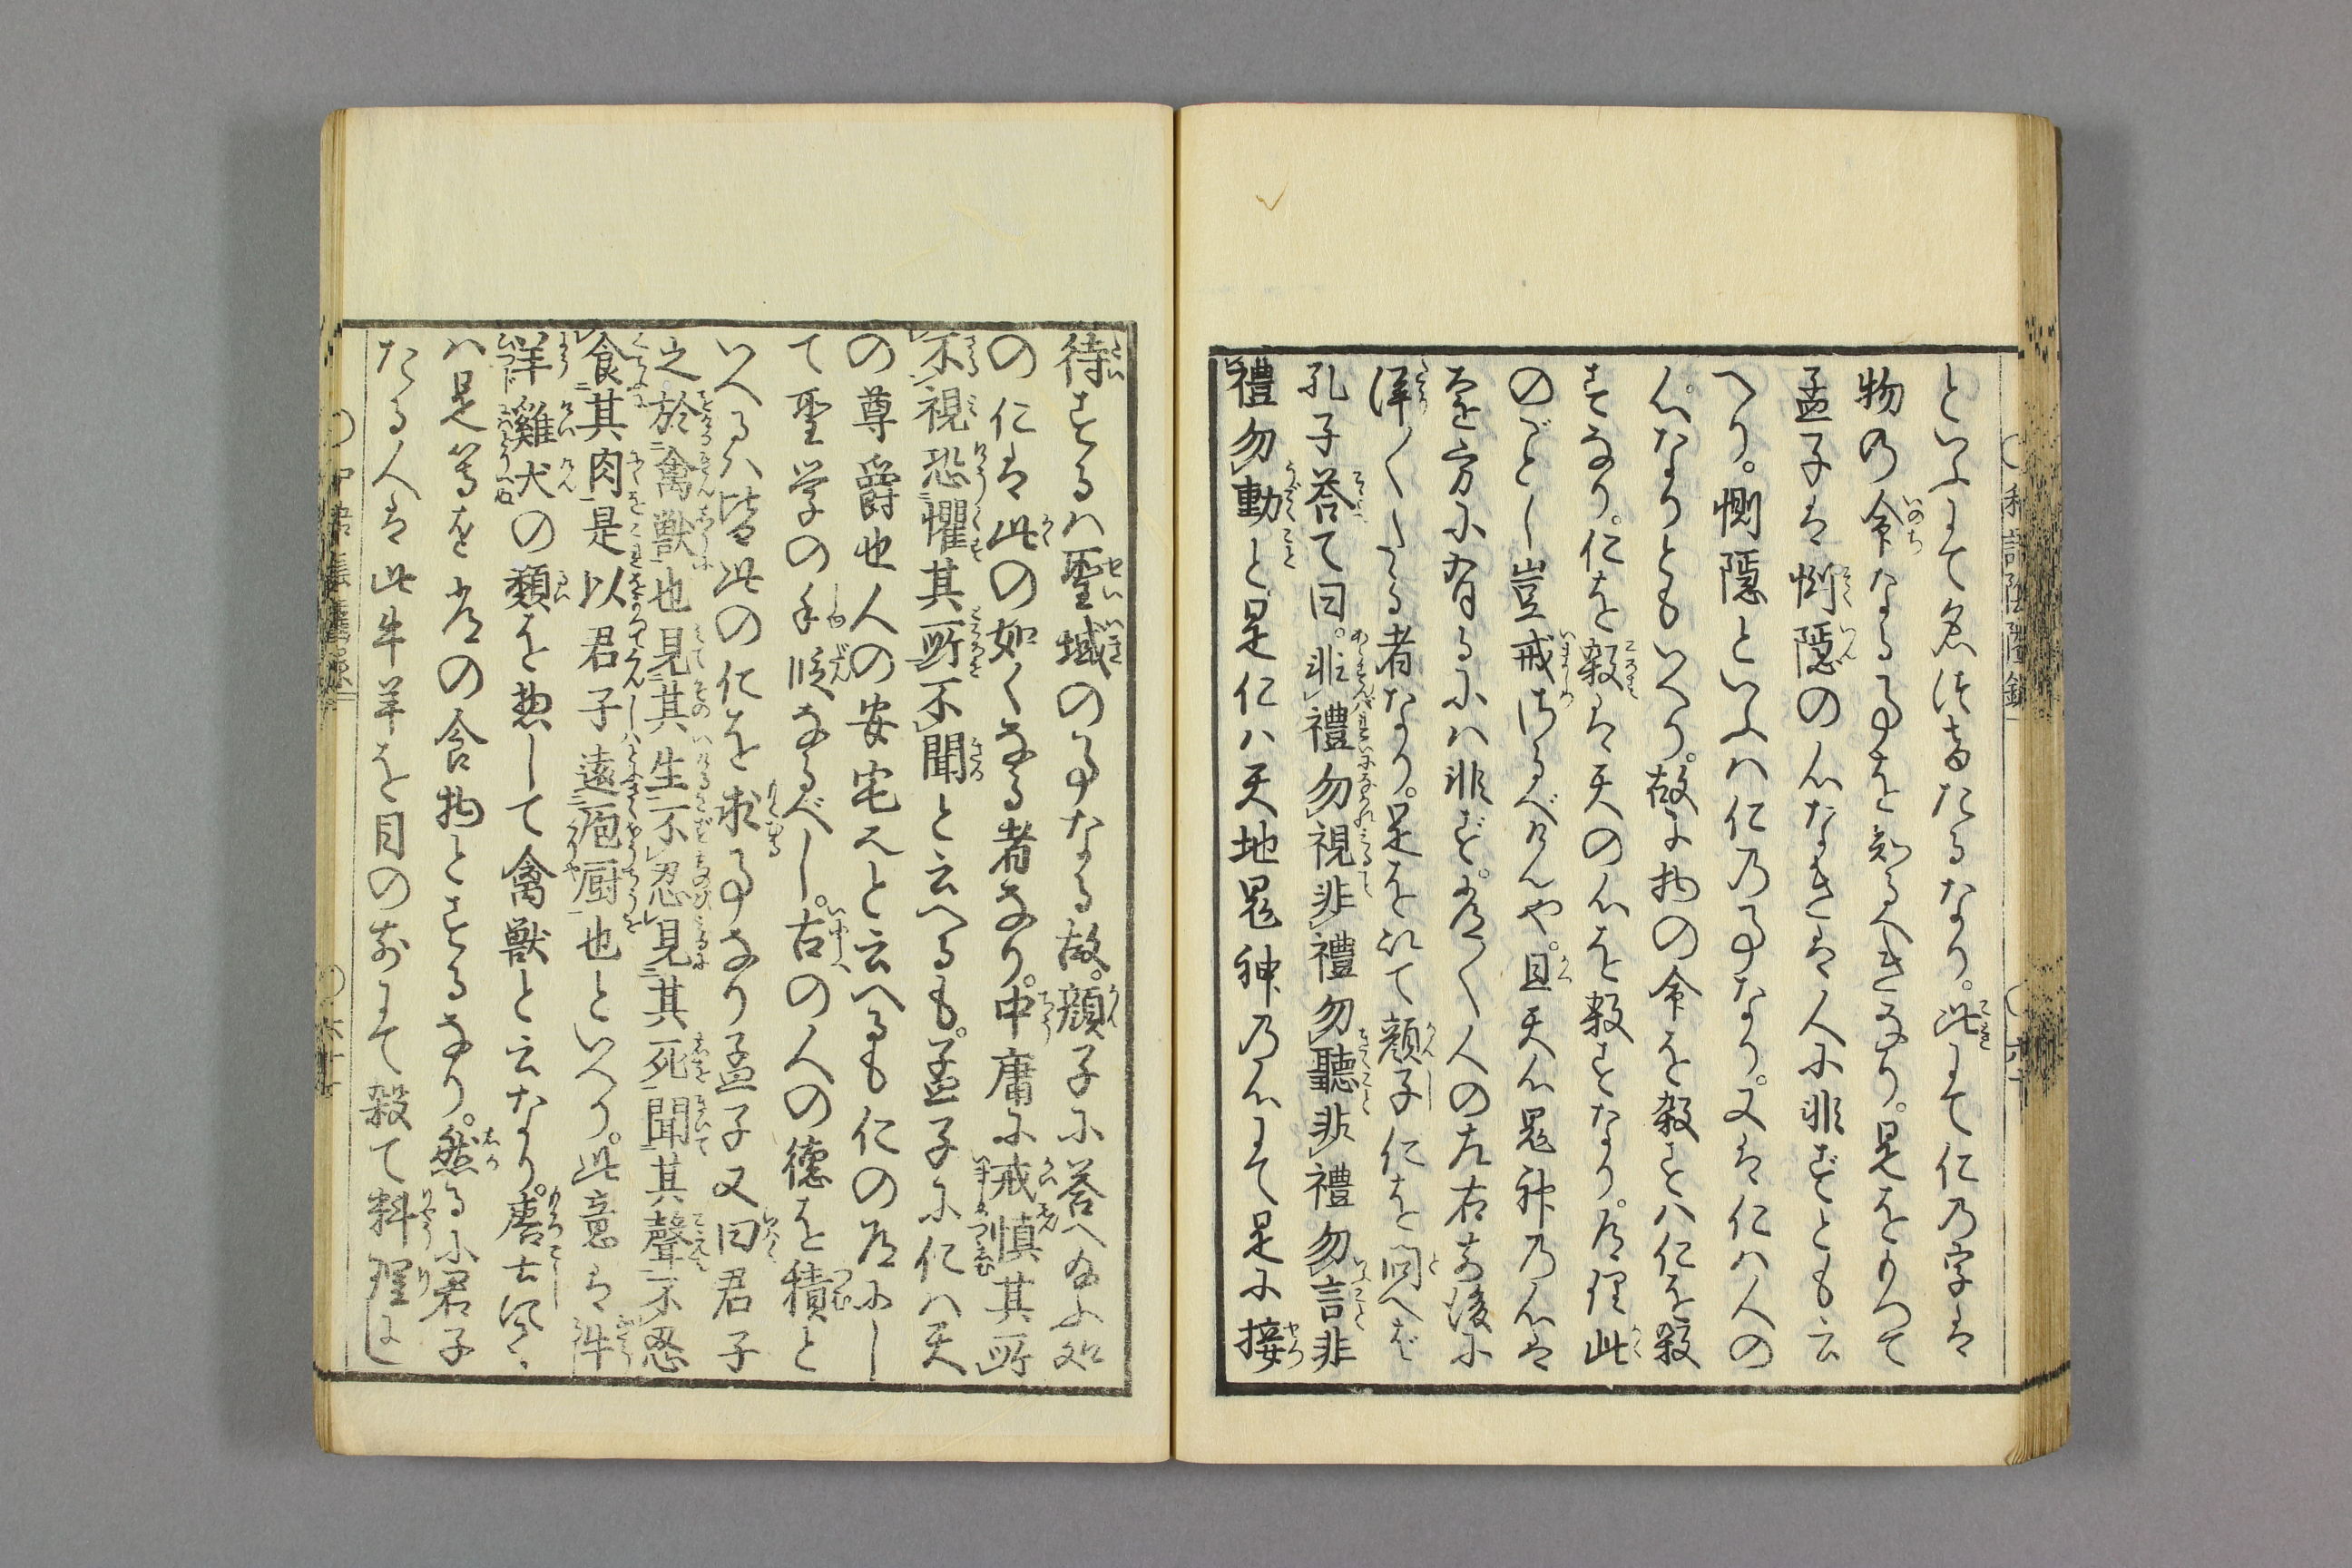 といふまて名付けたるなり。此まて仁乃字は
物の命なる事を知るへきなり。是をもつて
孟子は惻隠の心なきは人に非ずとも云
へり。惻隠といふハ仁乃事なり。又は仁ハ人の
心なりともいへり。故に物の命を殺すハ仁を殺
すなり。仁を殺すは天の心を殺すなり。道理此
のごとし豈戒ざるべけんや。且天心鬼神乃心は
遠方に有るにハ非ず。洋々人の左右前後に
洋〱たる者なり。是を以て顔子仁を問へば
孔子答て曰。非禮勿視非禮勿聽非禮勿言非
禮勿動と是仁ハ天地鬼神乃心まて是に接
待するハ聖域の事なる故。顔子に答へ給ふ処
の仁は此の如くなる者なり。中庸に戒慎其所
不視恐懼其所不聞と云へるも。孟子に仁ハ天
の尊爵也人の安宅也と云へるも仁の道にし
て聖学の手段なるべし。古の人の徳を積と
いへるハ皆此の仁を求る事なり孟子又曰君子
之於禽獣也見其生不忍見其死聞其聲不忍
食其肉是以君子遠庖厨也といへり。此意は牛
羊雞犬の類を惣して禽獣と云なり。唐土にて
ハ是等を常の食物とするなり。然るに君子
たる人は此牛羊を目の前まて殺て料理し